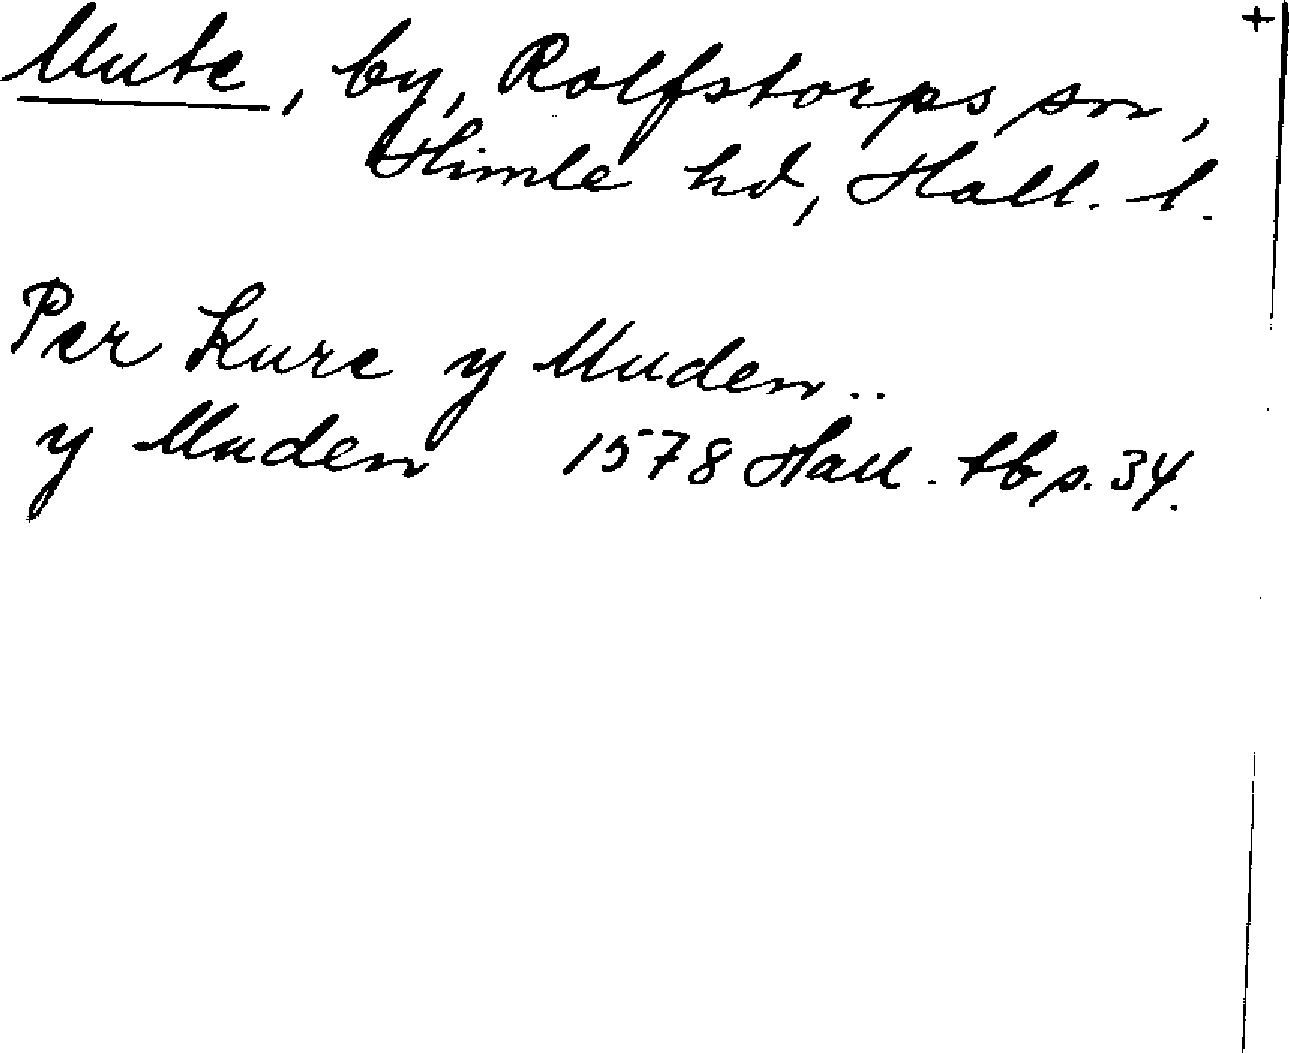 +
Mute, by, Rolfstorps sn,
Himle hd, Hall. l.
Per Kure y Muden..
y Muden 1578 Hall. tb s. 34.